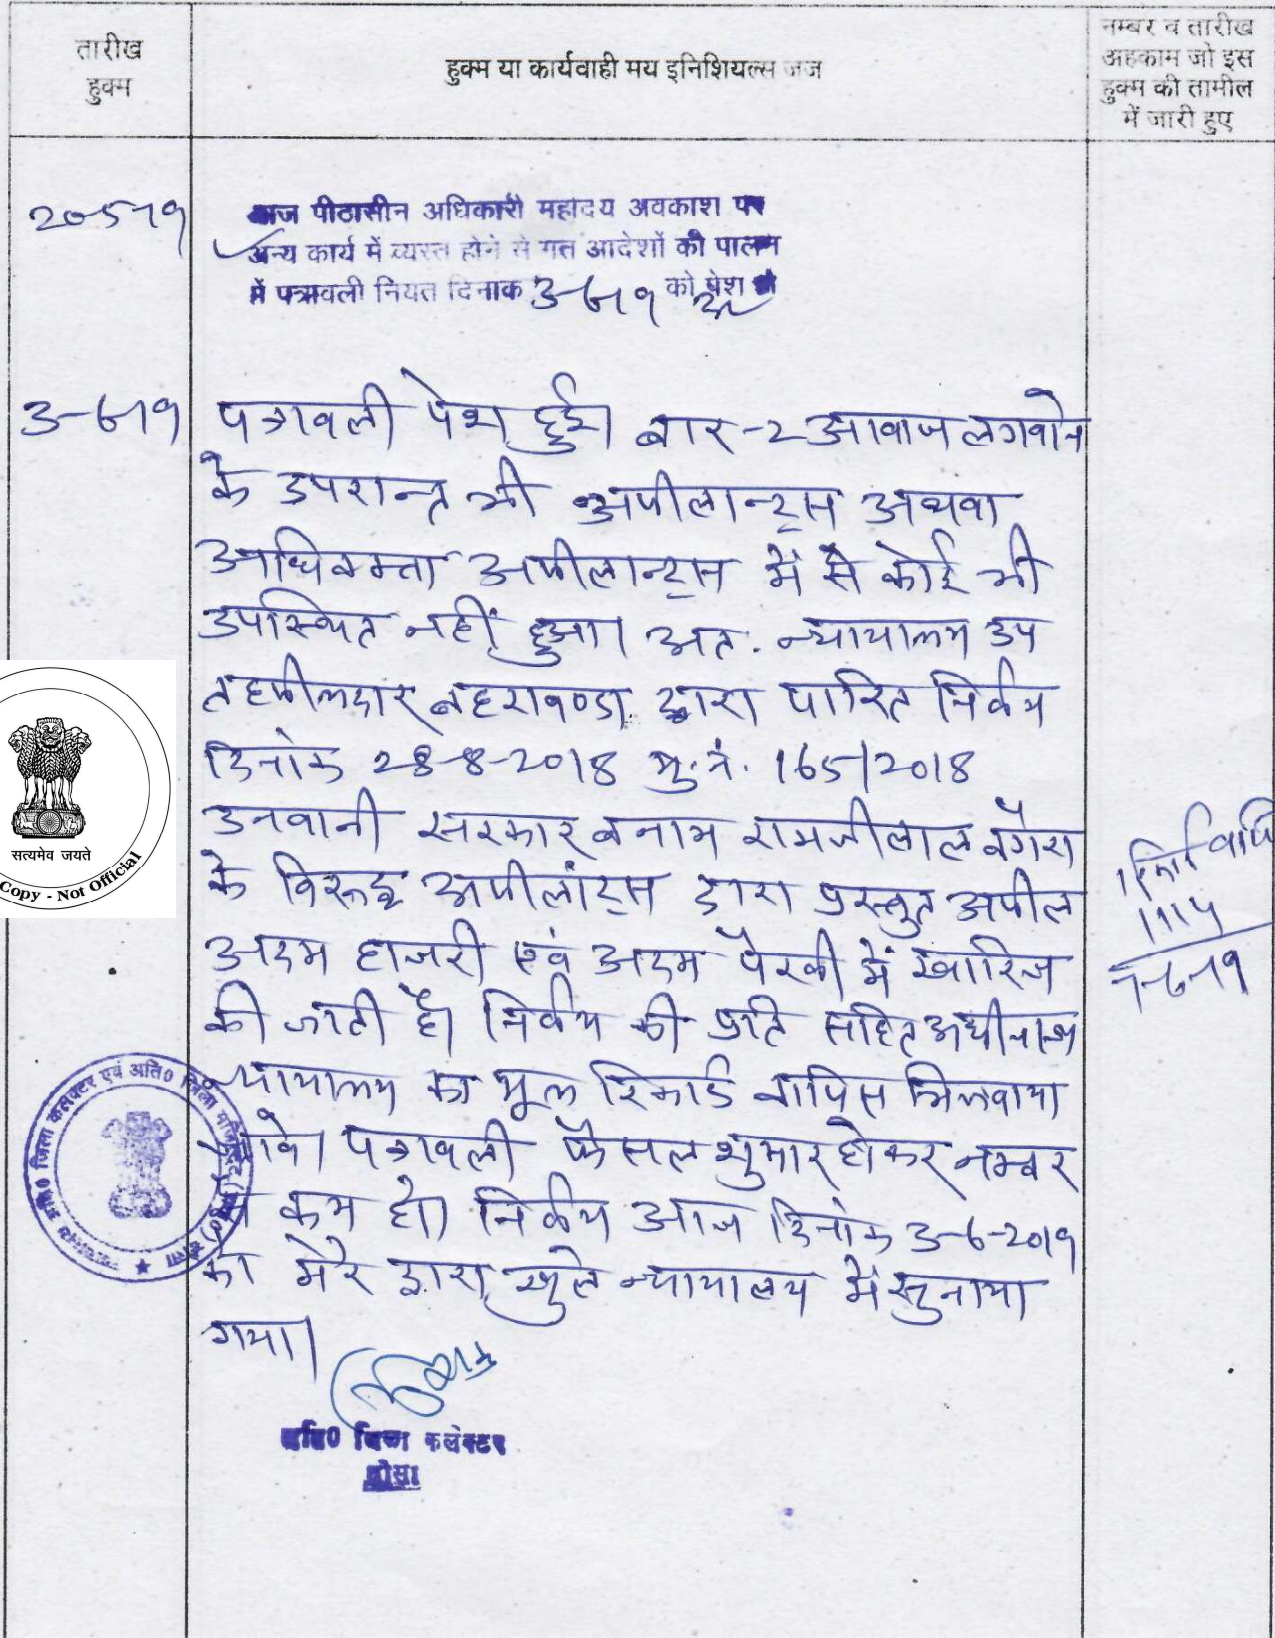 तारीख
हुक्म
हुक्म या कार्यवाही मय इनिशियल्स जज
नम्बर व तारीख
अहकाम जो इस
हुक्म की तामील
में जारी हुए
20-5-19
आज पीठासीन अधिकारी महोदय अवकाश पर
अन्य कार्य में व्यस्त होने से गत आदेशों की पालन
में पत्रावली नियत दिनांक 3-6-19 को पेश हो
3-6-19
पत्रावली पेश हुई। बार-2 आवाज लगवाने
के उपरान्त भी अपीलान्ट्स अथवा
अधिवक्ता अपीलान्ट्स में से कोई भी
उपस्थित नहीं हुआ। अत: न्यायालय उप
तहसीलदार बहरावण्डा द्वारा पारित निर्णय
दिनांक 28-8-2018 मु.नं. 165/2018
उनवानी सरकार बनाम रामजीलाल वगैरा
के विरूद्ध अपीलांट्स द्वारा प्रस्तुत अपील
अदम हाजरी एवं अदम पैरवी में खारिज
की जाती है। निर्णय की प्रति सहित अधीनस्थ
न्यायालय का मूल रिकार्ड वापिस भिजवाया
जावे। पत्रावली फैसल शुमार होकर नम्बर
से कम हो। निर्णय आज दिनांक 3-6-2019
को मेरे द्वारा खुले न्यायालय में सुनाया
गया।
अति0 जिला कलेक्टर
दौसा
सत्यमेव जयते
Copy - Not Official
1114
7-6-19
जिला कलक्टर एवं अति0 जिला